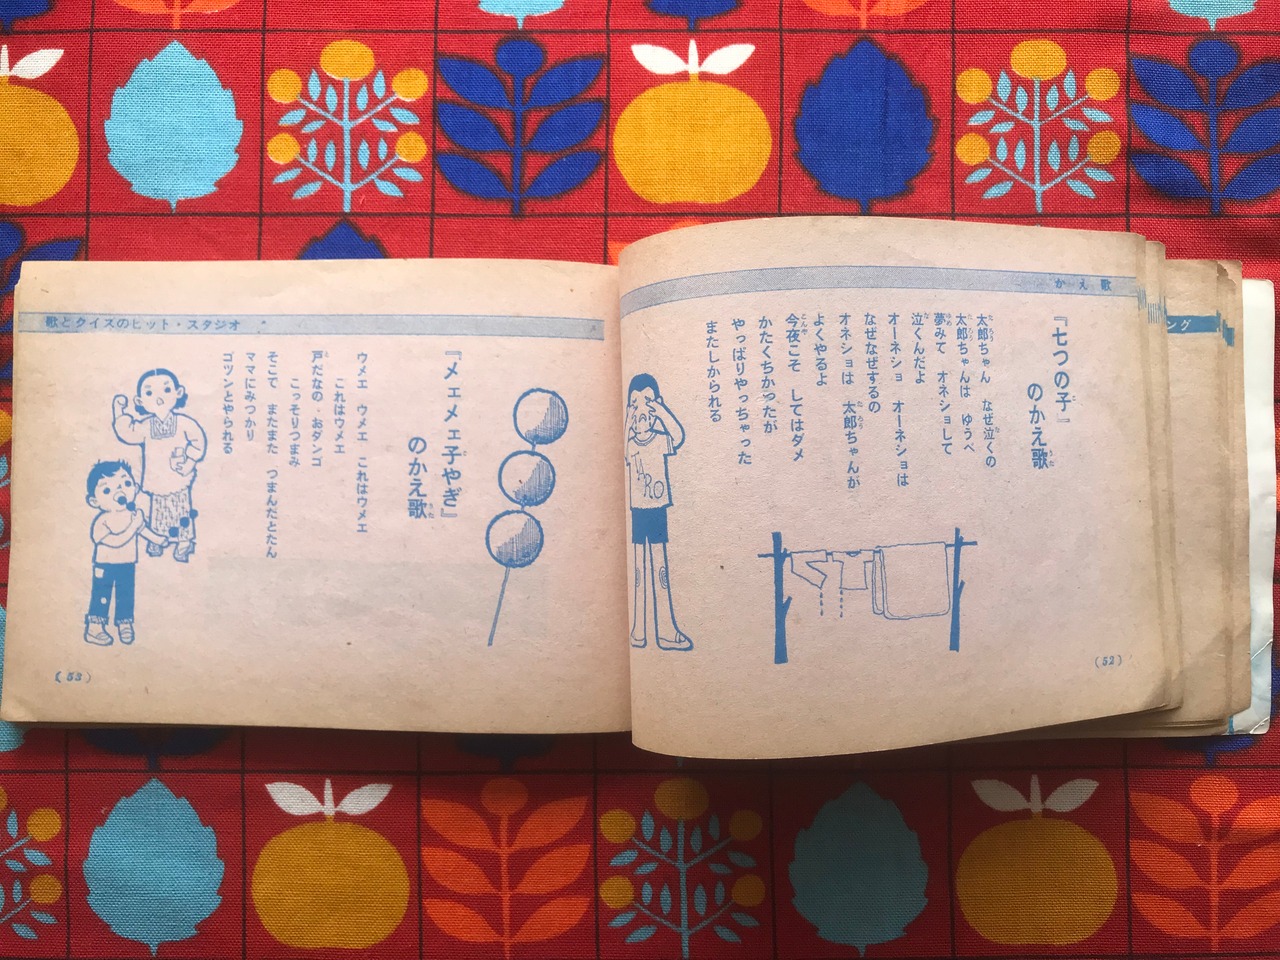 かえ歌
『七つの子』
のかえ歌
太郎ちゃん なぜ泣くの
太郎ちゃんは ゆうべ
夢みて オネショして
泣くんだよ
オーネショ オーネショは
なぜなぜするの
オネショは 太郎ちゃんが
よくやるよ
今夜こそ してはダメ
かたくちかったが
やっぱりやっちゃった
またしかられる
TARO
(52)
ング
歌とクイズのヒット・スタジオ
『メェメェ子やぎ』
のかえ歌
ウメエ ウメエ これはウメエ
これはウメエ
戸だなの おダンゴ
こっそりつまみ
そこで またまた つまんだとたん
ママにみつかり
ゴツンとやられる
(53)